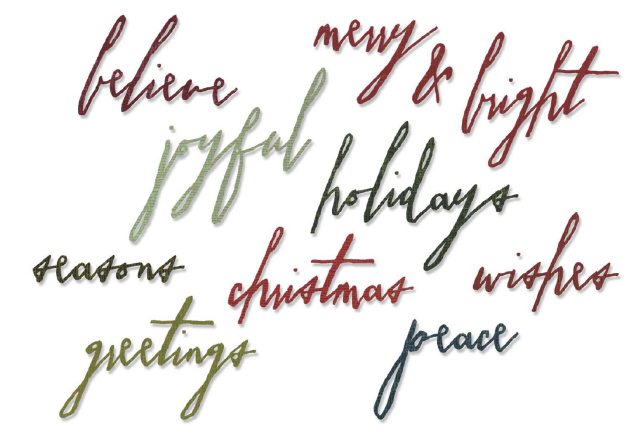 believe
merry & bright
joyful
holidays
seasons
christmas
wishes
greetings
peace